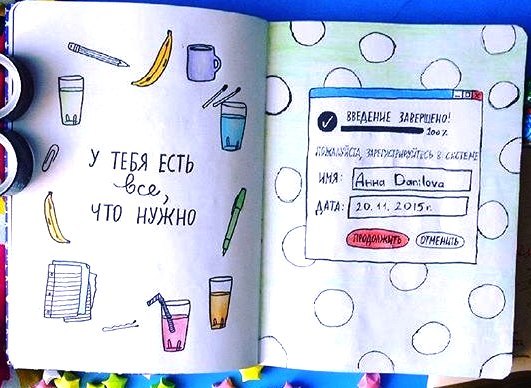 У ТЕБЯ ЕСТЬ
все,
ЧТО НУЖНО
ВВЕДЕНИЕ ЗАВЕРШЕНО!
100%
ПОЖАЛУЙСТА, ЗАРЕГИСТРИРУЙТЕСЬ В СИСТЕМЕ
ИМЯ: Анна Danilova
ДАТА: 20.11.2015г.
ПРОДОЛЖИТЬ ОТМЕНИТЬ